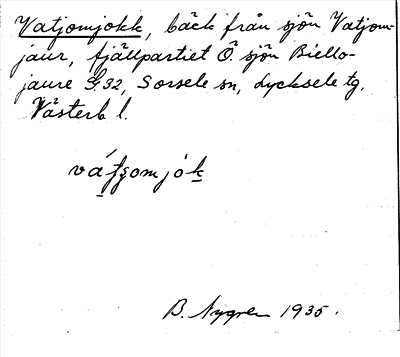 Vatjomjokk, bäck från sjön Vatjom-
jaur, fjällpartiet Ö. sjön Biello-
jaure G32, Sorsele sn, Lycksele tg,
Västerb l.
B. Nygren 1935.